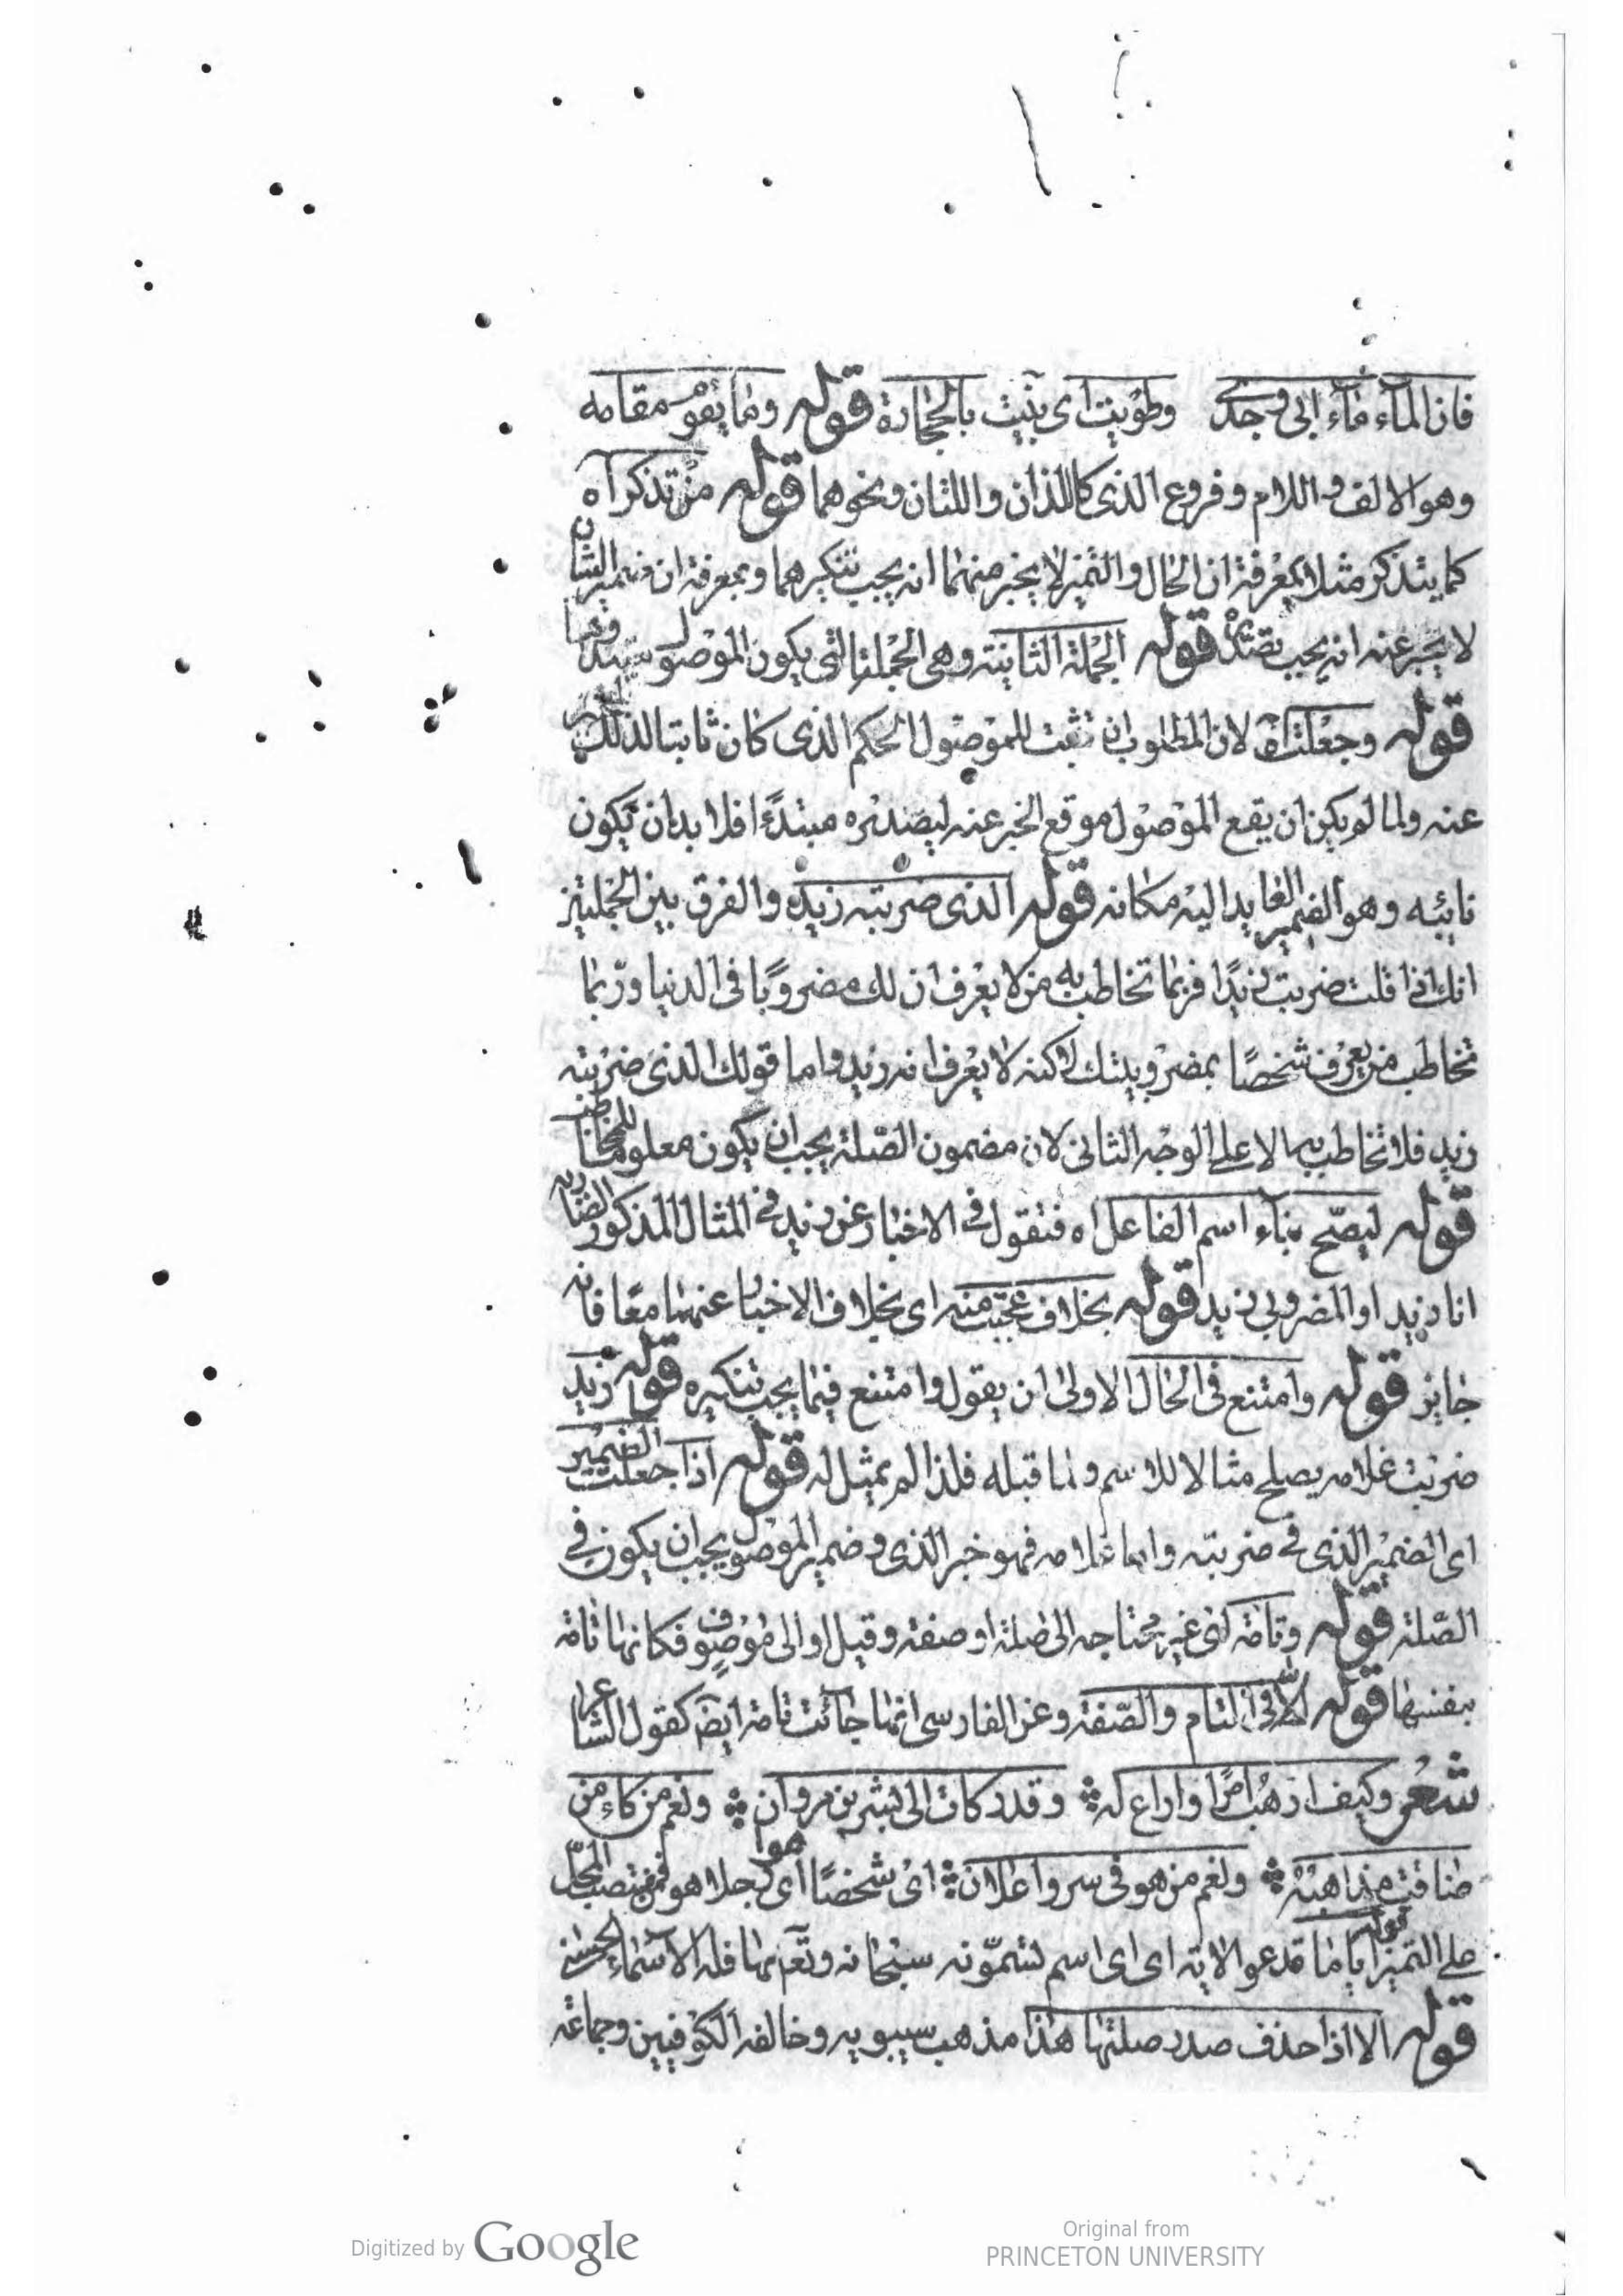 فان الماء ماء ابى وجدى وطويت اى بنيت بالحجارة قوله وما يقوم مقامه
وهو الالف واللام وفروع الذى كاللذان واللتان ونحوهما قوله من تذكر آه
كما يتذكر مثلا بمعرفة ان الحال والتميز لا يخبر عنهما انه يجب تنكيرهما وبمعرفة ان ضمير الشان
لا يخبر عنه انه يجب تصدره قوله الجملة الثانية وهى الجملة التى يكون الموصول مبتدأ فيها
قوله وجعلت آه لان المطلوب ان تثبت للموصول الحكم الذى كان ثابتا لذلك المخبر
عنه ولما لم يكن ان يقع الموصول موقع المخبر عنه ليصدره مبتدءا فلا بد ان تكون
نايبه وهو الضمير العايد اليه مكانه قوله الذى ضربته زيد والفرق بين الجملتين
انك اذا قلت ضربت زيدا فربما تخاطب به من لا يعرف ان لك مضروبا فى الدنيا وربما
تخاطب من يعرف شخصا بمضروبيتك لكنه لا يعرف انه زيد واما قولك الذى ضربته
زيد فلا تخاطب به الا على الوجه الثانى لان مضمون الصلة يجب ان يكون معلوما للمخاطب
قوله ليصح بناء اسم الفاعل اه فتقول فى الاخبار عن زيد فى المثال المذكور الضاربه
انا زيد او المضروبى زيد قوله بخلاف عجبت منه اى بخلاف الاخبار عنهما معا فانه
جايز قوله وامتنع فى الحال الاولى ان يقول وامتنع فيما يجب تنكيره قوله زيد
ضربت غلامه يصلح مثالا للاسم ولما قبله فلذا لم يمثل له قوله اذا جعلت الضمير
اى الضمير الذى فى ضربته واما غلامه فهو خبر الذى وضمير الموصول يجب ان يكون فى
الصلة قوله وتامة اى غير محتاجه الى صلة او صفة وقيل او الى موصوف فكانها تامة
بنفسها قوله الا فى التام والصفة وعن الفارسى انها جائت تامة ايضا كقول الشاعر
شعر وكيف ارهب امرا واراع له وقد زكات الى بشر بن مروان ونعم من كاء من
ضاقت مذاهبه ونعم من هو فى سر واعلان اى شخصا اى رجلا هو فمن منصب المحل
على التميز قوله اياما تدعو الاية اى اى اسم تسمونه سبحانه وتعم بها فله الاسماء الحسنى
قوله الا اذا حذف صدر صلتها هذا مذهب سيبويه وخالفه الكوفيين وجماعة
Digitized by Google
Original from
PRINCETON UNIVERSITY